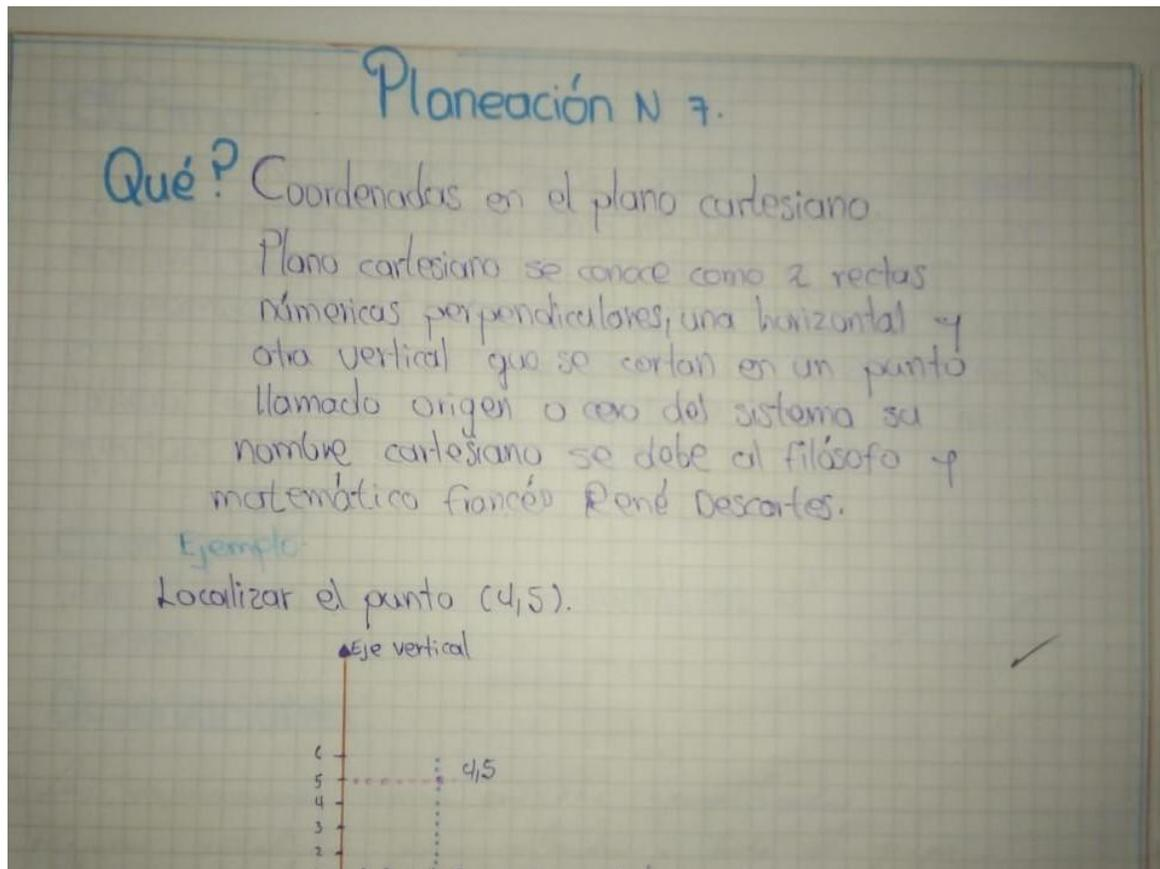 Planeación N 7.
Qué? Coordenadas en el plano cartesiano
Plano cartesiano se conoce como 2 rectas
númericas perpendiculares, una horizontal y
otra vertical que se cortan en un punto
llamado origen o cero del sistema su
nombre cartesiano se debe al filósofo y
matemático francés René Descartes.
Ejemplo
Localizar el punto (4,5).
Eje vertical
6
5
4,5
4
3
2